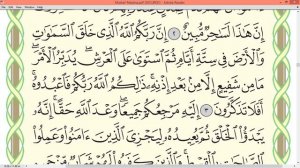 Mushaf Madina.pdf (SECURED) - Adobe Reader
إِنَّ هَٰذَا لَسَٰحِرٌ مُّبِينٌ ٢ إِنَّ رَبَّكُمُ ٱللَّهُ ٱلَّذِى خَلَقَ ٱلسَّمَٰوَٰتِ
وَٱلْأَرْضَ فِى سِتَّةِ أَيَّامٍ ثُمَّ ٱسْتَوَىٰ عَلَى ٱلْعَرْشِ يُدَبِّرُ ٱلْأَمْرَ
مَا مِن شَفِيعٍ إِلَّا مِنۢ بَعْدِ إِذْنِهِۦ ذَٰلِكُمُ ٱللَّهُ رَبُّكُمْ فَٱعْبُدُوهُ
أَفَلَا تَذَكَّرُونَ ٣ إِلَيْهِ مَرْجِعُكُمْ جَمِيعًا وَعْدَ ٱللَّهِ حَقًّا إِنَّهُۥ
يَبْدَؤُا۟ ٱلْخَلْقَ ثُمَّ يُعِيدُهُۥ لِيَجْزِىَ ٱلَّذِينَ ءَامَنُوا۟ وَعَمِلُوا۟